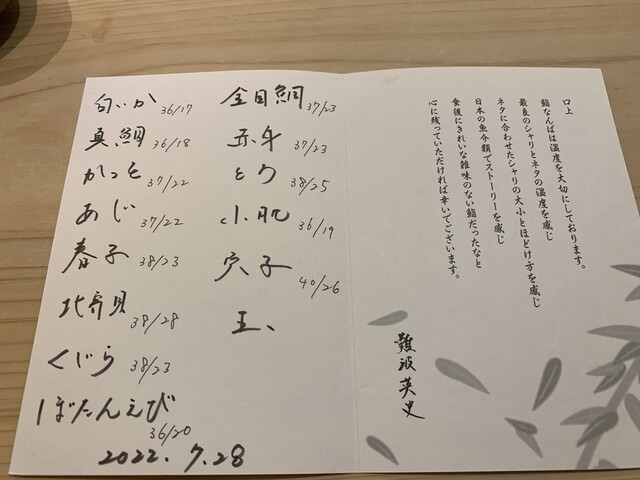 白いか 36/17
真鯛 36/18
かつを 37/22
あじ 37/22
春子 38/23
北寄貝 38/28
くじら 38/23
ぼたんえび 36/20
金目鯛 37/23
赤身 37/23
とろ 38/25
小肌 36/19
穴子 40/26
玉、
2022.7.28
口上
鮨なんばは温度を大切にしております。
最良のシャリとネタの温度を感じ
ネタに合わせたシャリの大小とほどけ方を感じ
日本の魚介類でストーリーを感じ
食後にきれいな雑味のない鮨だったなと
心に残っていただければ幸いでございます。
難波英史